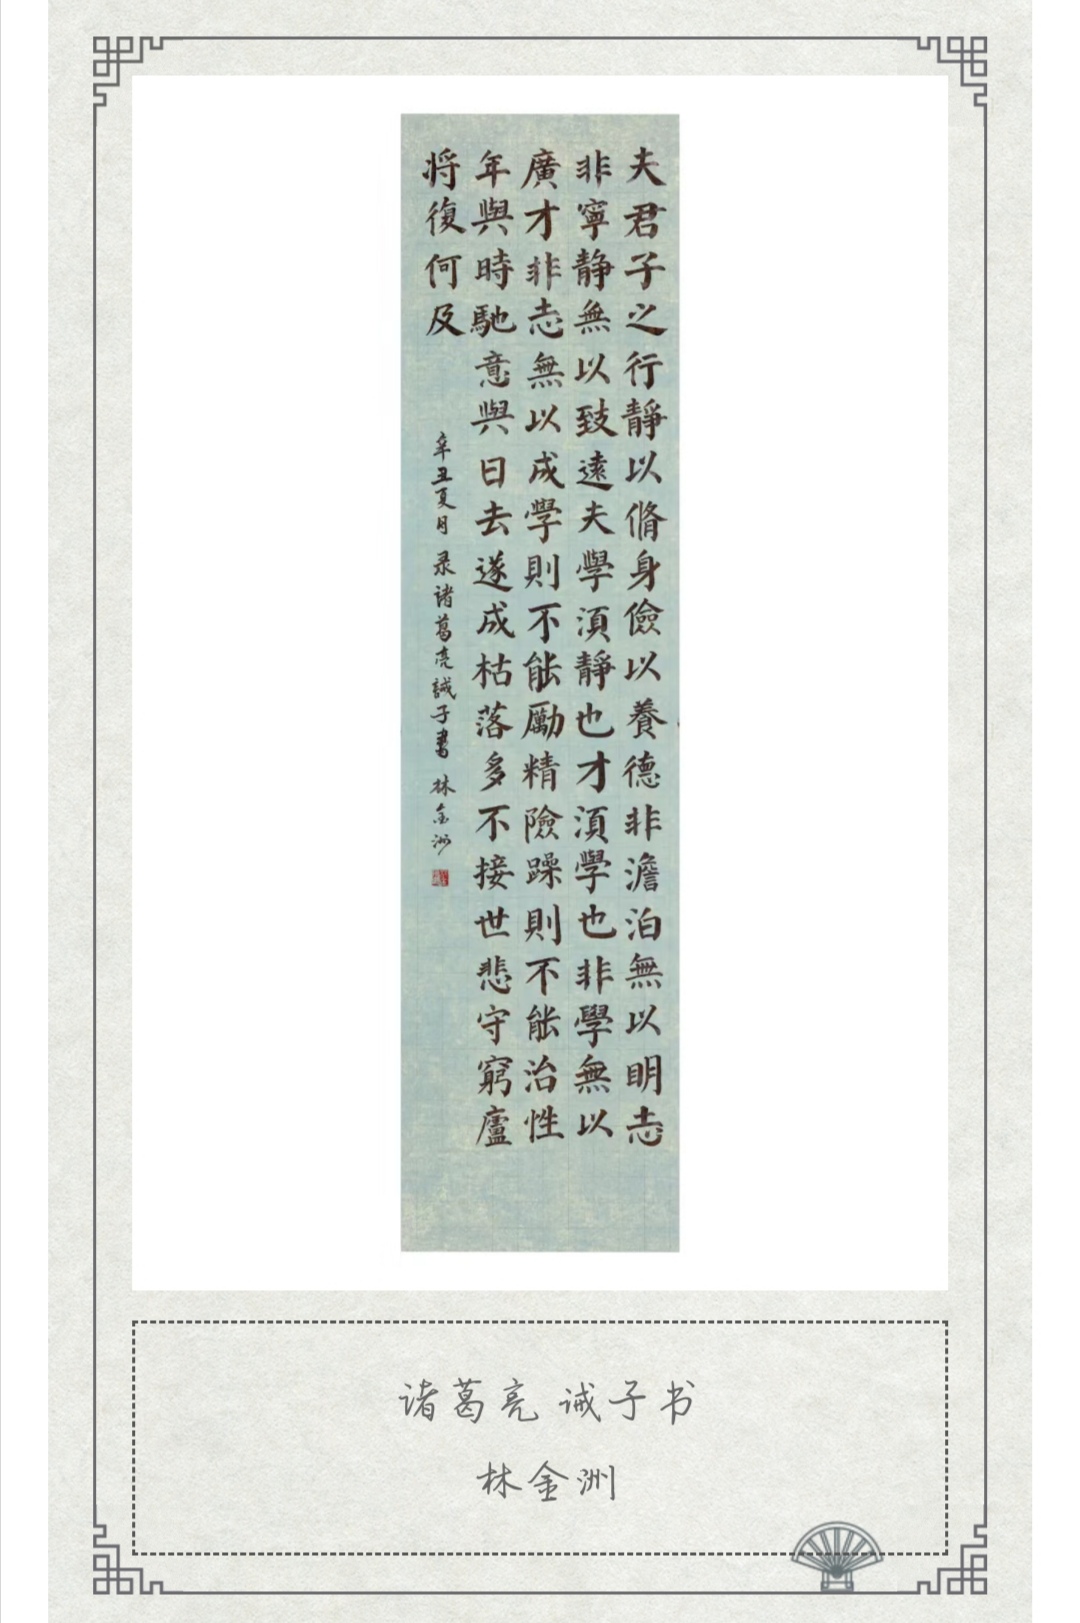 夫君子之行靜以脩身儉以養德非澹泊無以明志
非寧靜無以致遠夫學須靜也才須學也非學無以
廣才非志無以成學則不能勵精險躁則不能治性
年與時馳意與日去遂成枯落多不接世悲守窮廬
将復何及
辛丑夏月录诸葛亮誡子書林金洲
诸葛亮 诫子书
林金洲